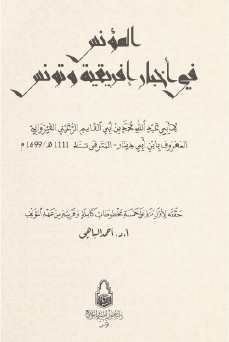 المؤنس
في أخبار إفريقية وتونس
لأبي عبد الله محمد بن أبي القاسم الرعيني القيرواني
المعروف بابن أبي دينار - المتوفى سنة 1111هـ/1699م
حققه لأول مرة على خمسة مخطوطات كاملة وقريبة من عهد المؤلف
أ.د. أحمد الباهي
تونس